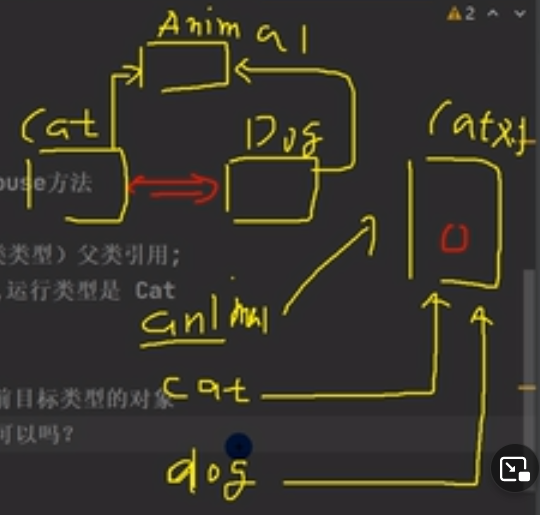 2
Animal
Cat
Dog
Cat对
ouse方法
类类型）父类引用;
运行类型是 Cat
animal
cat
前目标类型的对象
可以吗?
dog